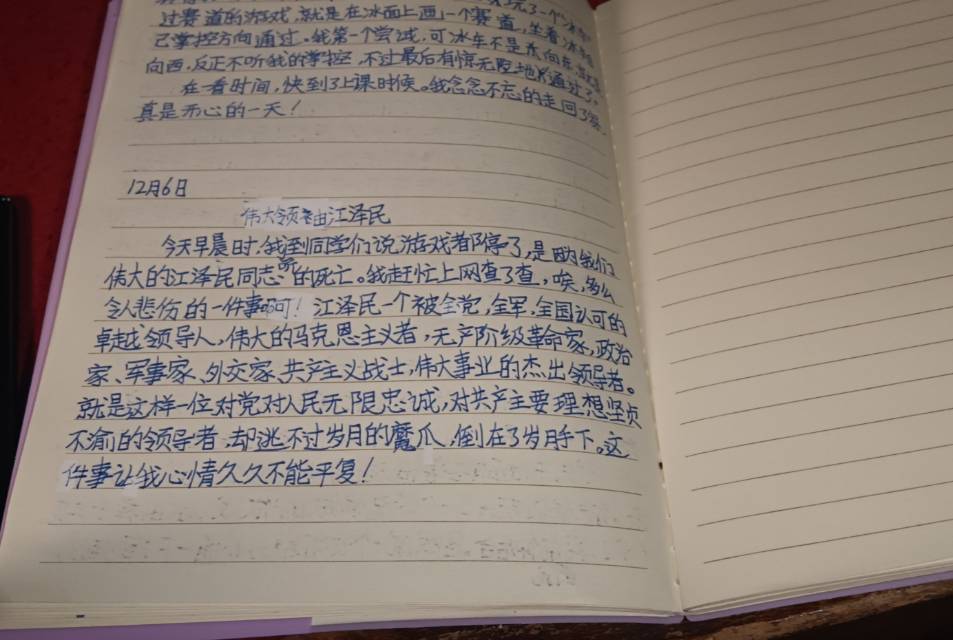 过赛道的游戏,就是在冰面上画一个赛道,坐着冰车
己掌控方向通过。我第一个尝试,可冰车不是东向
向西,反正不听我的掌控,不过最后有惊无险地通过了。
在看时间,快到了上课时候。我念念不忘的走回了家。
真是开心的一天!
12月6日
伟大领袖江泽民
今天早晨时,我到同学们说游戏都停了,是因为我们
伟大的江泽民同志的死亡。我赶忙上网查了查,唉,多么
令人悲伤的一件事啊!江泽民一个被全党,全军,全国认可的
卓越领导人,伟大的马克思主义者,无产阶级革命家,政治
家、军事家、外交家、共产主义战士,伟大事业的杰出领导者。
就是这样一位对党对人民无限忠诚,对共产主要理想坚贞
不渝的领导者,却逃不过岁月的魔爪,倒在了岁月手下。这
件事让我心情久久不能平复!